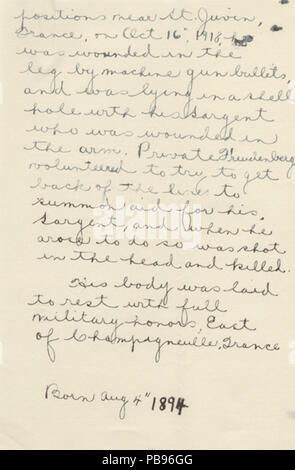 positions near St. Juvin,
France, on Oct 16", 1918, he
was wounded in the
leg by machine gun bullets,
and was lying in a shell
hole with his Sargent
who was wounded in
the arm. Private Freudenberg
volunteered to try to get
back of the lines to
summon aid for his
Sargent, and when he
arose to do so was shot
in the head and killed.
His body was laid
to rest with full
military honors, East
of Champagneulle, France
Born Aug 4" 1894
alamy
Image ID: PB96GG
www.alamy.com